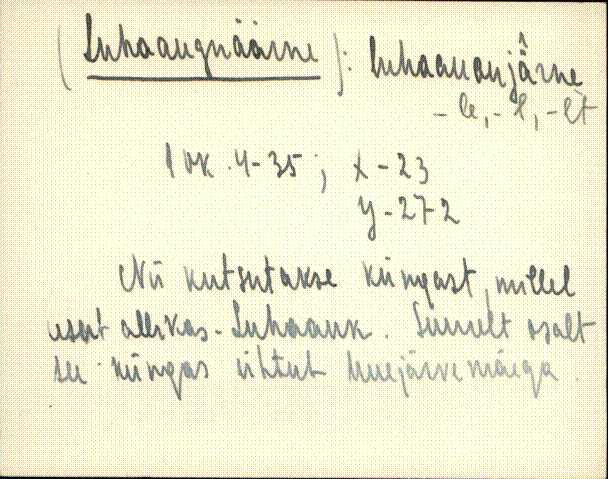 (Suhaaugnäärne): Suhaauanjärne
- le, - l, - lt
1 VK. 4-35; x - 23
y - 272
Nii kutsutakse küngast, millel
asub allikas - Suhaauk. Suurelt osalt
see küngas ühtub Suurjärve mäega.